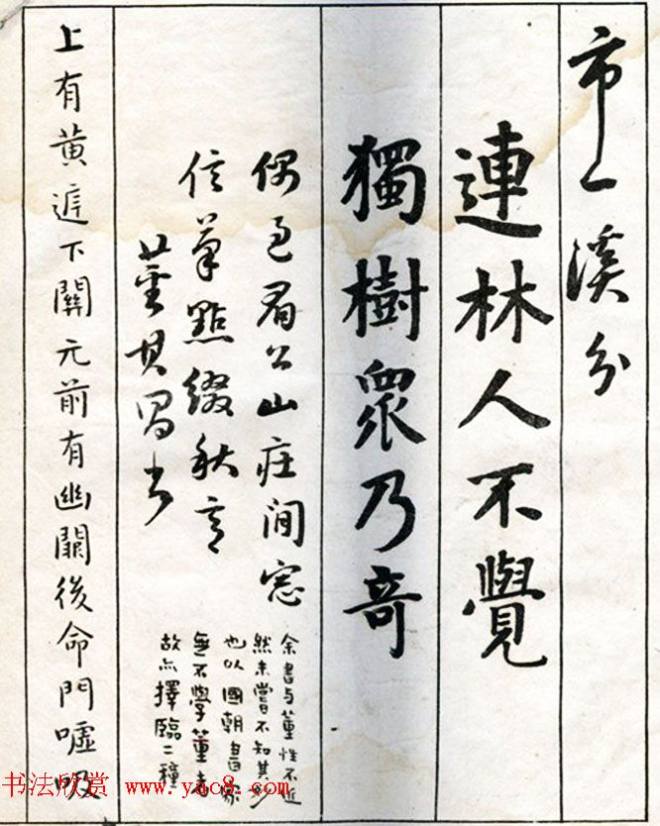 市一溪分
連林人不覺
獨樹眾乃奇
偶過眉公山莊閒窓
信筆點綴秋意
董其昌書
余書与董性不近
然未嘗不知其妙
也以國朝書家
無不學董者
故亦擇臨二種
上有黃庭下關元前有幽關後命門噓吸
书法欣赏 www.yac8.com